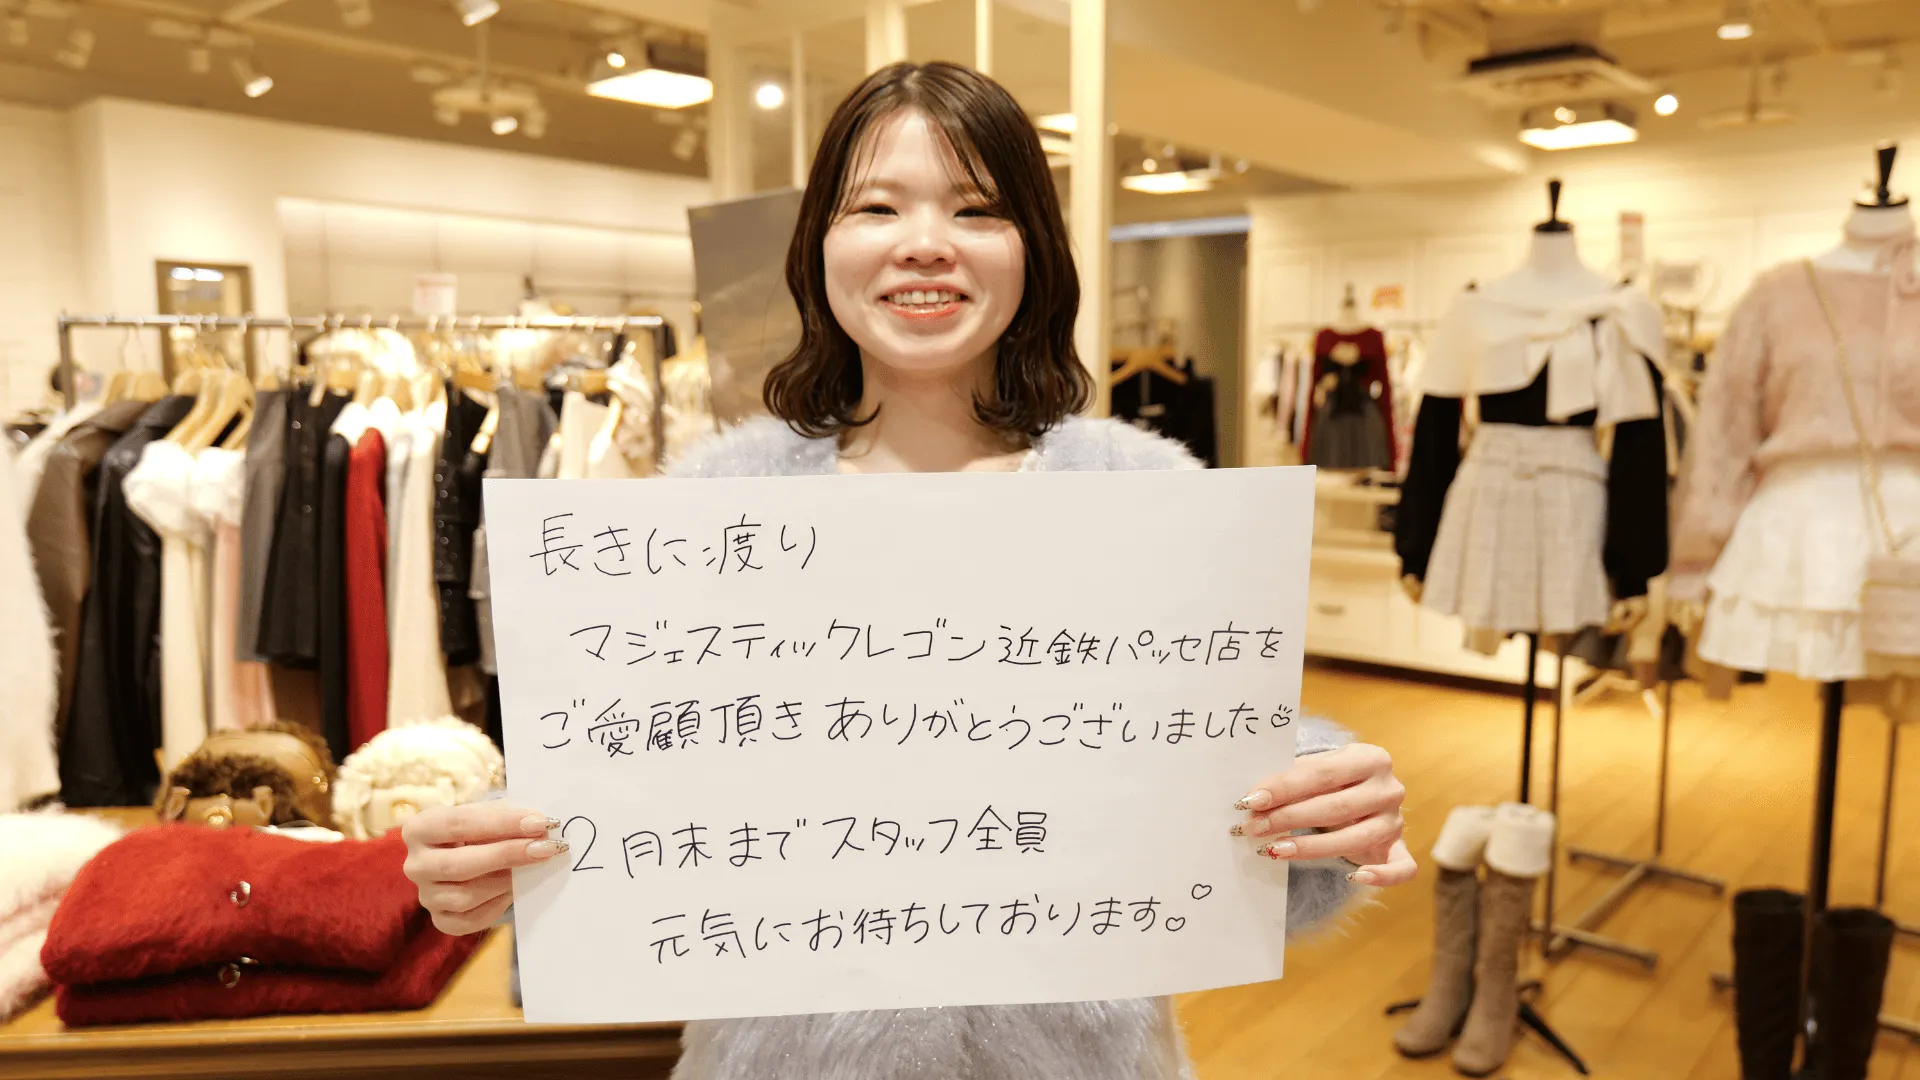 長きに渡り
マジェスティックレゴン近鉄パッセ店を
ご愛顧頂きありがとうございました♡
2月末までスタッフ全員
元気にお待ちしております。♡